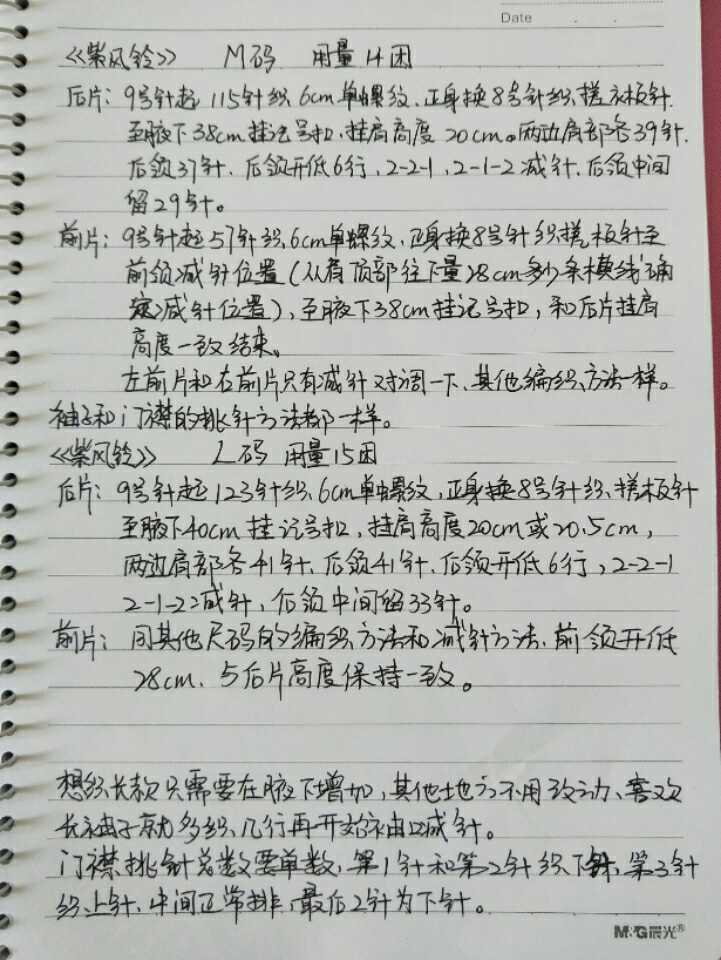 Date
《紫风铃》 M码 用量14团
后片：9号针起115针织6cm单螺纹，正身换8号针织搓衣板针，
至腋下38cm挂记号扣，挂肩高度20cm。两边肩部各39针，
后领37针，后领开低6行，2-2-1，2-1-2减针，后领中间
留29针。
前片：9号针起57针织6cm单螺纹，正身换8号针织搓板针至
前领减针位置（从肩顶部往下量28cm多少条横线确
定减针位置），至腋下38cm挂记号扣，和后片挂肩
高度一致结束。
左前片和右前片只有减针对调一下，其他编织方法一样。
袖子和门襟的挑针方法都一样。
《紫风铃》 L码 用量15团
后片：9号针起123针织6cm单螺纹，正身换8号针织搓板针
至腋下40cm挂记号扣，挂肩高度20cm或20.5cm，
两边肩部各41针，后领41针，后领开低6行，2-2-1
2-1-2减针，后领中间留33针。
前片：同其他尺码的编织方法和减针方法，前领开低
28cm，与后片高度保持一致。
想织长款只需要在腋下增加，其他地方不用改动，喜欢
长袖子就多织几行再开始袖口减针。
门襟挑针总数要单数，第1针和第2针织下针，第3针
织上针，中间正常排，最后2针为下针。
M&G晨光®